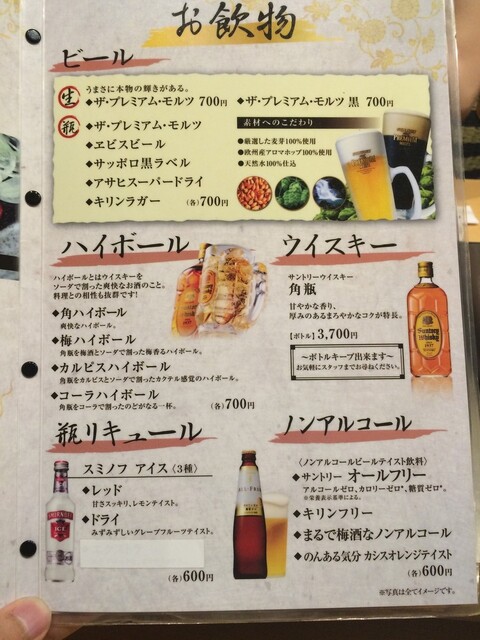 お飲物
ビール
うまさに本物の輝きがある。
生 ◆ザ・プレミアム・モルツ 700円 ◆ザ・プレミアム・モルツ 黒 700円
瓶 ◆ザ・プレミアム・モルツ
◆ヱビスビール
◆サッポロ黒ラベル
◆アサヒスーパードライ
◆キリンラガー (各)700円
素材へのこだわり
●厳選した麦芽100%使用
●欧州産アロマホップ100%使用
●天然水100%仕込
ハイボール
ハイボールとはウイスキーを
ソーダで割った爽快なお酒のこと。
料理との相性も抜群です!
◆角ハイボール
爽快なハイボール。
◆梅ハイボール
角瓶を梅酒とソーダで割った梅香るハイボール。
◆カルピスハイボール
角瓶をカルピスとソーダで割ったカクテル感覚のハイボール。
◆コーラハイボール
角瓶をコーラで割ったのどがなる一杯。 (各)700円
ウイスキー
サントリーウイスキー
角瓶
甘やかな香り、
厚みのあるまろやかなコクが特長。
【ボトル】3,700円
〜ボトルキープ出来ます〜
お気軽にスタッフまでお尋ねください。
Suntory
Whisky
瓶リキュール
スミノフ アイス〈3種〉
◆レッド
甘さスッキリ、レモンテイスト。
◆ドライ
みずみずしいグレープフルーツテイスト。
(各)600円
SMIRNOFF
ICE
ノンアルコール
〈ノンアルコールビールテイスト飲料〉
◆サントリー オールフリー
アルコールゼロ、カロリーゼロ*、糖質ゼロ*。
※栄養表示基準による。
◆キリンフリー
◆まるで梅酒なノンアルコール
◆のんある気分 カシスオレンジテイスト
(各)600円
※写真は全てイメージです。